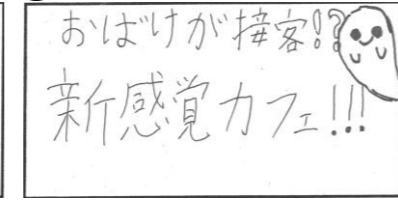 おばけが接客!?
新感覚カフェ!!!